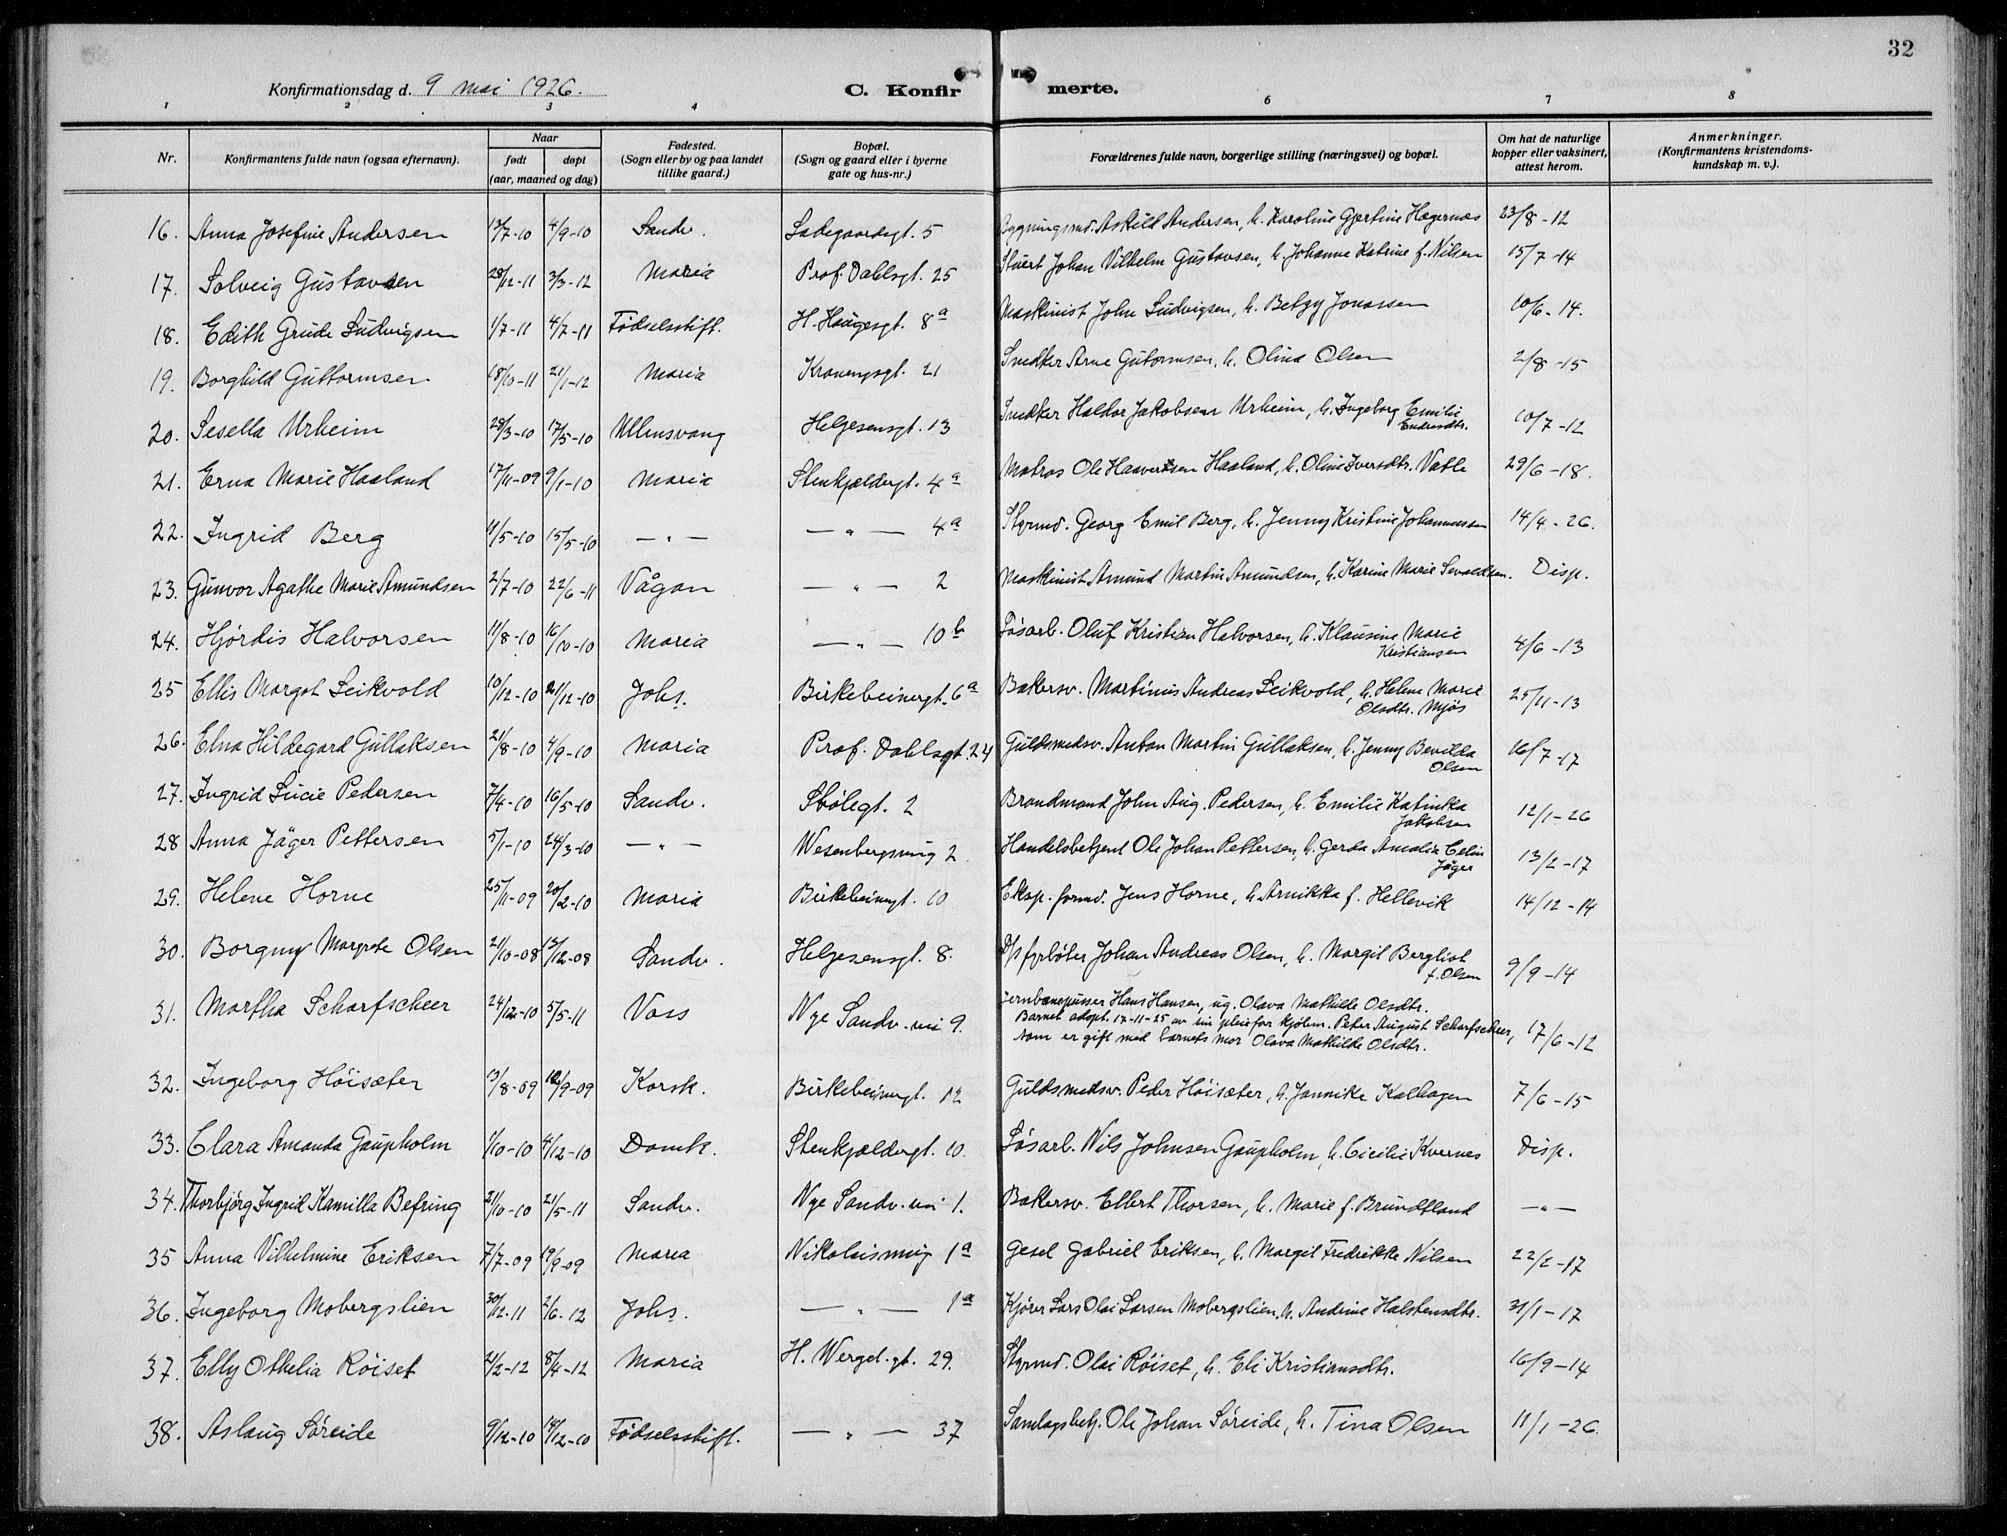 32
Konfirmationsdag d. 9 mai 1926.
C. Konfir merte.
1 2 3 4 6 7 8
Nr. Konfirmantens fulde navn (ogsaa efternavn). Naar født døpt (aar, maaned og dag) Fødested. (Sogn eller by og paa landet tillike gaard.) Bopæl. (Sogn og gaard eller i byerne gate og hus-nr.) Forældrenes fulde navn, borgerlige stilling (næringsvei) og bopæl. Om hat de naturlige kopper eller vaksinert, attest herom. Anmerkninger. (Konfirmantens kristendoms-kundskap m. v.).
16. Anna Josefine Andersen 13/7-10 4/9-10 Sandv. Ladegaardsgt. 5 Bygningssnd. Askild Andersen, h. Karoline Gjertine Hegernæs 23/8-12
17. Solveig Gustavsen 28/12-11 3/3-12 Maria Prof. Dahlsgt. 25 Stuert Johan Vilhelm Gustavsen, h. Johanne Katrine f. Nilsen 15/7-14
18. Edith Grude Ludvigsen 1/7-11 4/7-11 Fødselsstift. H. Haugesgt. 8a Maskinist John Ludvigsen, h. Betzy Jonassen 10/6-14.
19. Borghild Guttormsen 18/10-11 21/1-12 Maria Krovengsgt. 21 Snedker Arne Gutormsen, h. Olina Olsen 2/8-15
20. Sesella Urheim 28/3-10 17/5-10 Ullensvang Helgesensgt. 13 Snedker Haldor Jakobsen Urheim, h. Ingeborg Emilie Endresdtr. 10/7-12
21. Erna Marie Haaland 17/11-09 9/1-10 Maria Stenkjældergt. 4a Matros Ole Haavertsen Haaland, h. Oline Iversdtr. Vatle 29/6-18.
22. Ingrid Berg 11/5-10 15/5-10 — " — — " — 4a Styrmd. Georg Emil Berg, h. Jenny Kristine Johannessen 14/4-26.
23. Gunvor Agathe Marie Amundsen 2/7-10 22/6-11 Vågan — " — 2 Maskinist Amund Martin Amundsen, h. Karine Marie Sevaldsen. Disp.
24. Hjørdis Halvorsen 11/8-10 16/10-10 Maria — " — 10b Løsarb. Oluf Kristian Halvorsen, h. Klausine Marie Kristiansen 4/6-13
25 Ellis Margot Leikvold 10/12-10 21/12-10 Johs. Birkebeinergt. 6a Bakersv. Martinus Andreas Leikvold, h. Helene Marie Olsdtr. Mjøs 25/11-13
26. Elna Hildegard Gullaksen 21/8-10 4/9-10 Maria Prof. Dahlsgt. 24 Guldsmedsv. Anton Martin Gullaksen, h. Jenny Bevilda Olsen 16/7-17
27. Ingrid Lucie Pedersen 7/4-10 16/5-10 Sandv. Stølegt. 2 Brandmand John Aug. Pedersen, h. Emilie Katinka Jakobsen 12/1-26
28 Anna Jäger Pettersen 5/1-10 24/3-10 — " — Wesenbergsmug 2. Handelsbetjent Ole Johan Pettersen, h. Gerda Amalie Celin Jäger 13/2-17
29. Helene Horne 25/11-09 20/2-10 Maria Birkebeinergt. 10 Eksp. formd. Jens Horne, h. Arnikka f. Hellevik 14/12-14
30. Borgny Margrete Olsen 21/10-08 13/12-08 Sandv. Helgesensgt. 8. D/s fyrbøter Johan Andreas Olsen, h. Margit Bergliot f. Olsen 9/9-14
31. Martha Scharfscheer 24/12-10 5/5-11 Voss Nye Sandv. vei 9. Jernbanepusser Hans Hansen, ug. Olava Mathilde Olsdtr.
Barnet adopt. 17-11-25 av sin pleiefar kjølem. Peter August Scharfscheer,
som er gift med barnets mor Olava Mathilde Olsdtr. 17/6-12
32. Ingeborg Høisæter 13/8-09 12/9-09 Korsk. Birkebeinergt. 12 Guldsmedsv. Peder Høisæter, h. Jannike Kalhagen 7/6-15
33. Clara Amanda Gaupholm 1/10-10 4/12-10 Domk. Stenkjældergt. 10. Løsarb. Nils Johnsen Gaupholm, h. Cicilie Kvernes Disp.
34. Thorbjørg Ingrid Kamilla Befring 21/10-10 21/5-11 Sandv. Nye Sandv. vei 1. Bakersv. Ellert Thorsen, h. Marie f. Brundtland — " —
35 Anna Vilhelmine Eriksen 7/7-09 19/9-09 Maria Nikolaismug 1a Gesel Gabriel Eriksen, h. Margit Fredrikke Nilsen 22/2-17
36. Ingeborg Mobergslien 30/12-11 2/6-12 Johs. — " — 1a Kjører Lars Olai Larsen Mobergslien, h. Andrine Halstensdtr. 31/1-17
37. Elly Othelia Røiset 2/2-12 8/4-12 Maria H. Wergel. gt. 29. Styrmd. Olai Røiset, h. Eli Kristiansdtr. 16/9-14
38. Aslaug Søreide 9/12-10 14/12-10 Fødselsstift. — " — 37 Samlagsbetj. Ole Johan Søreide, h. Tina Olsen 11/1-26.